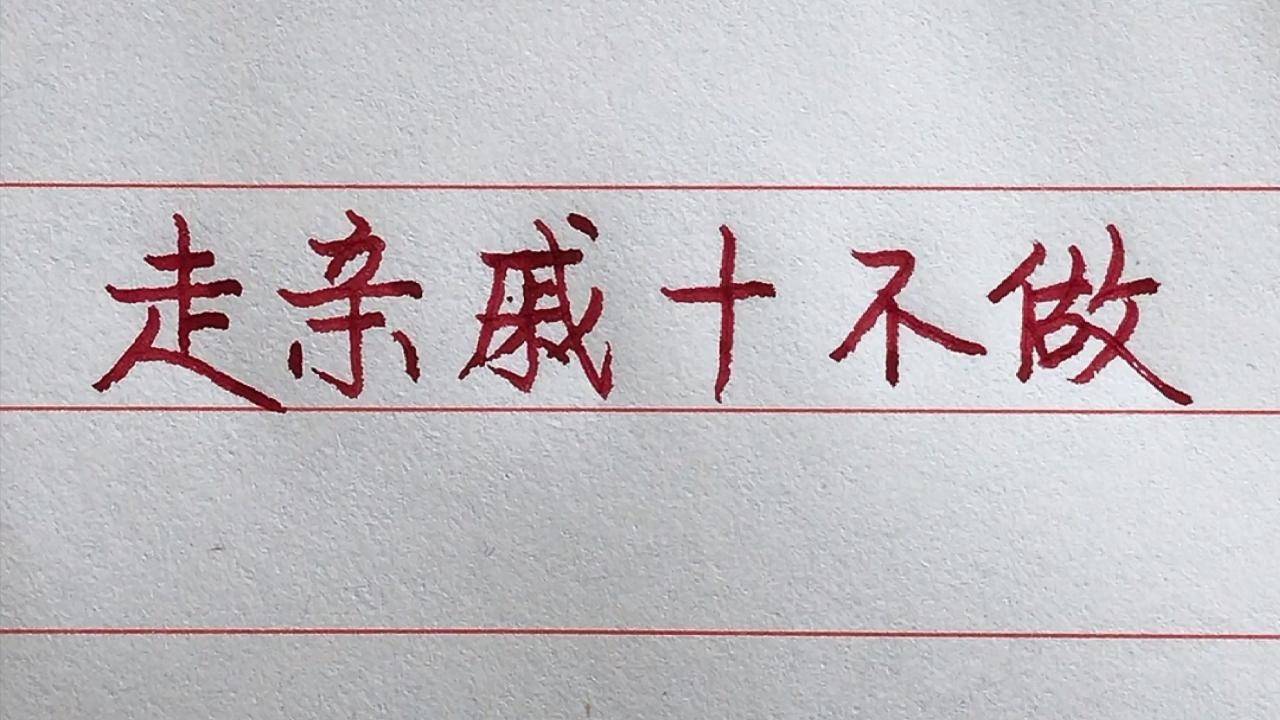 走亲戚十不做